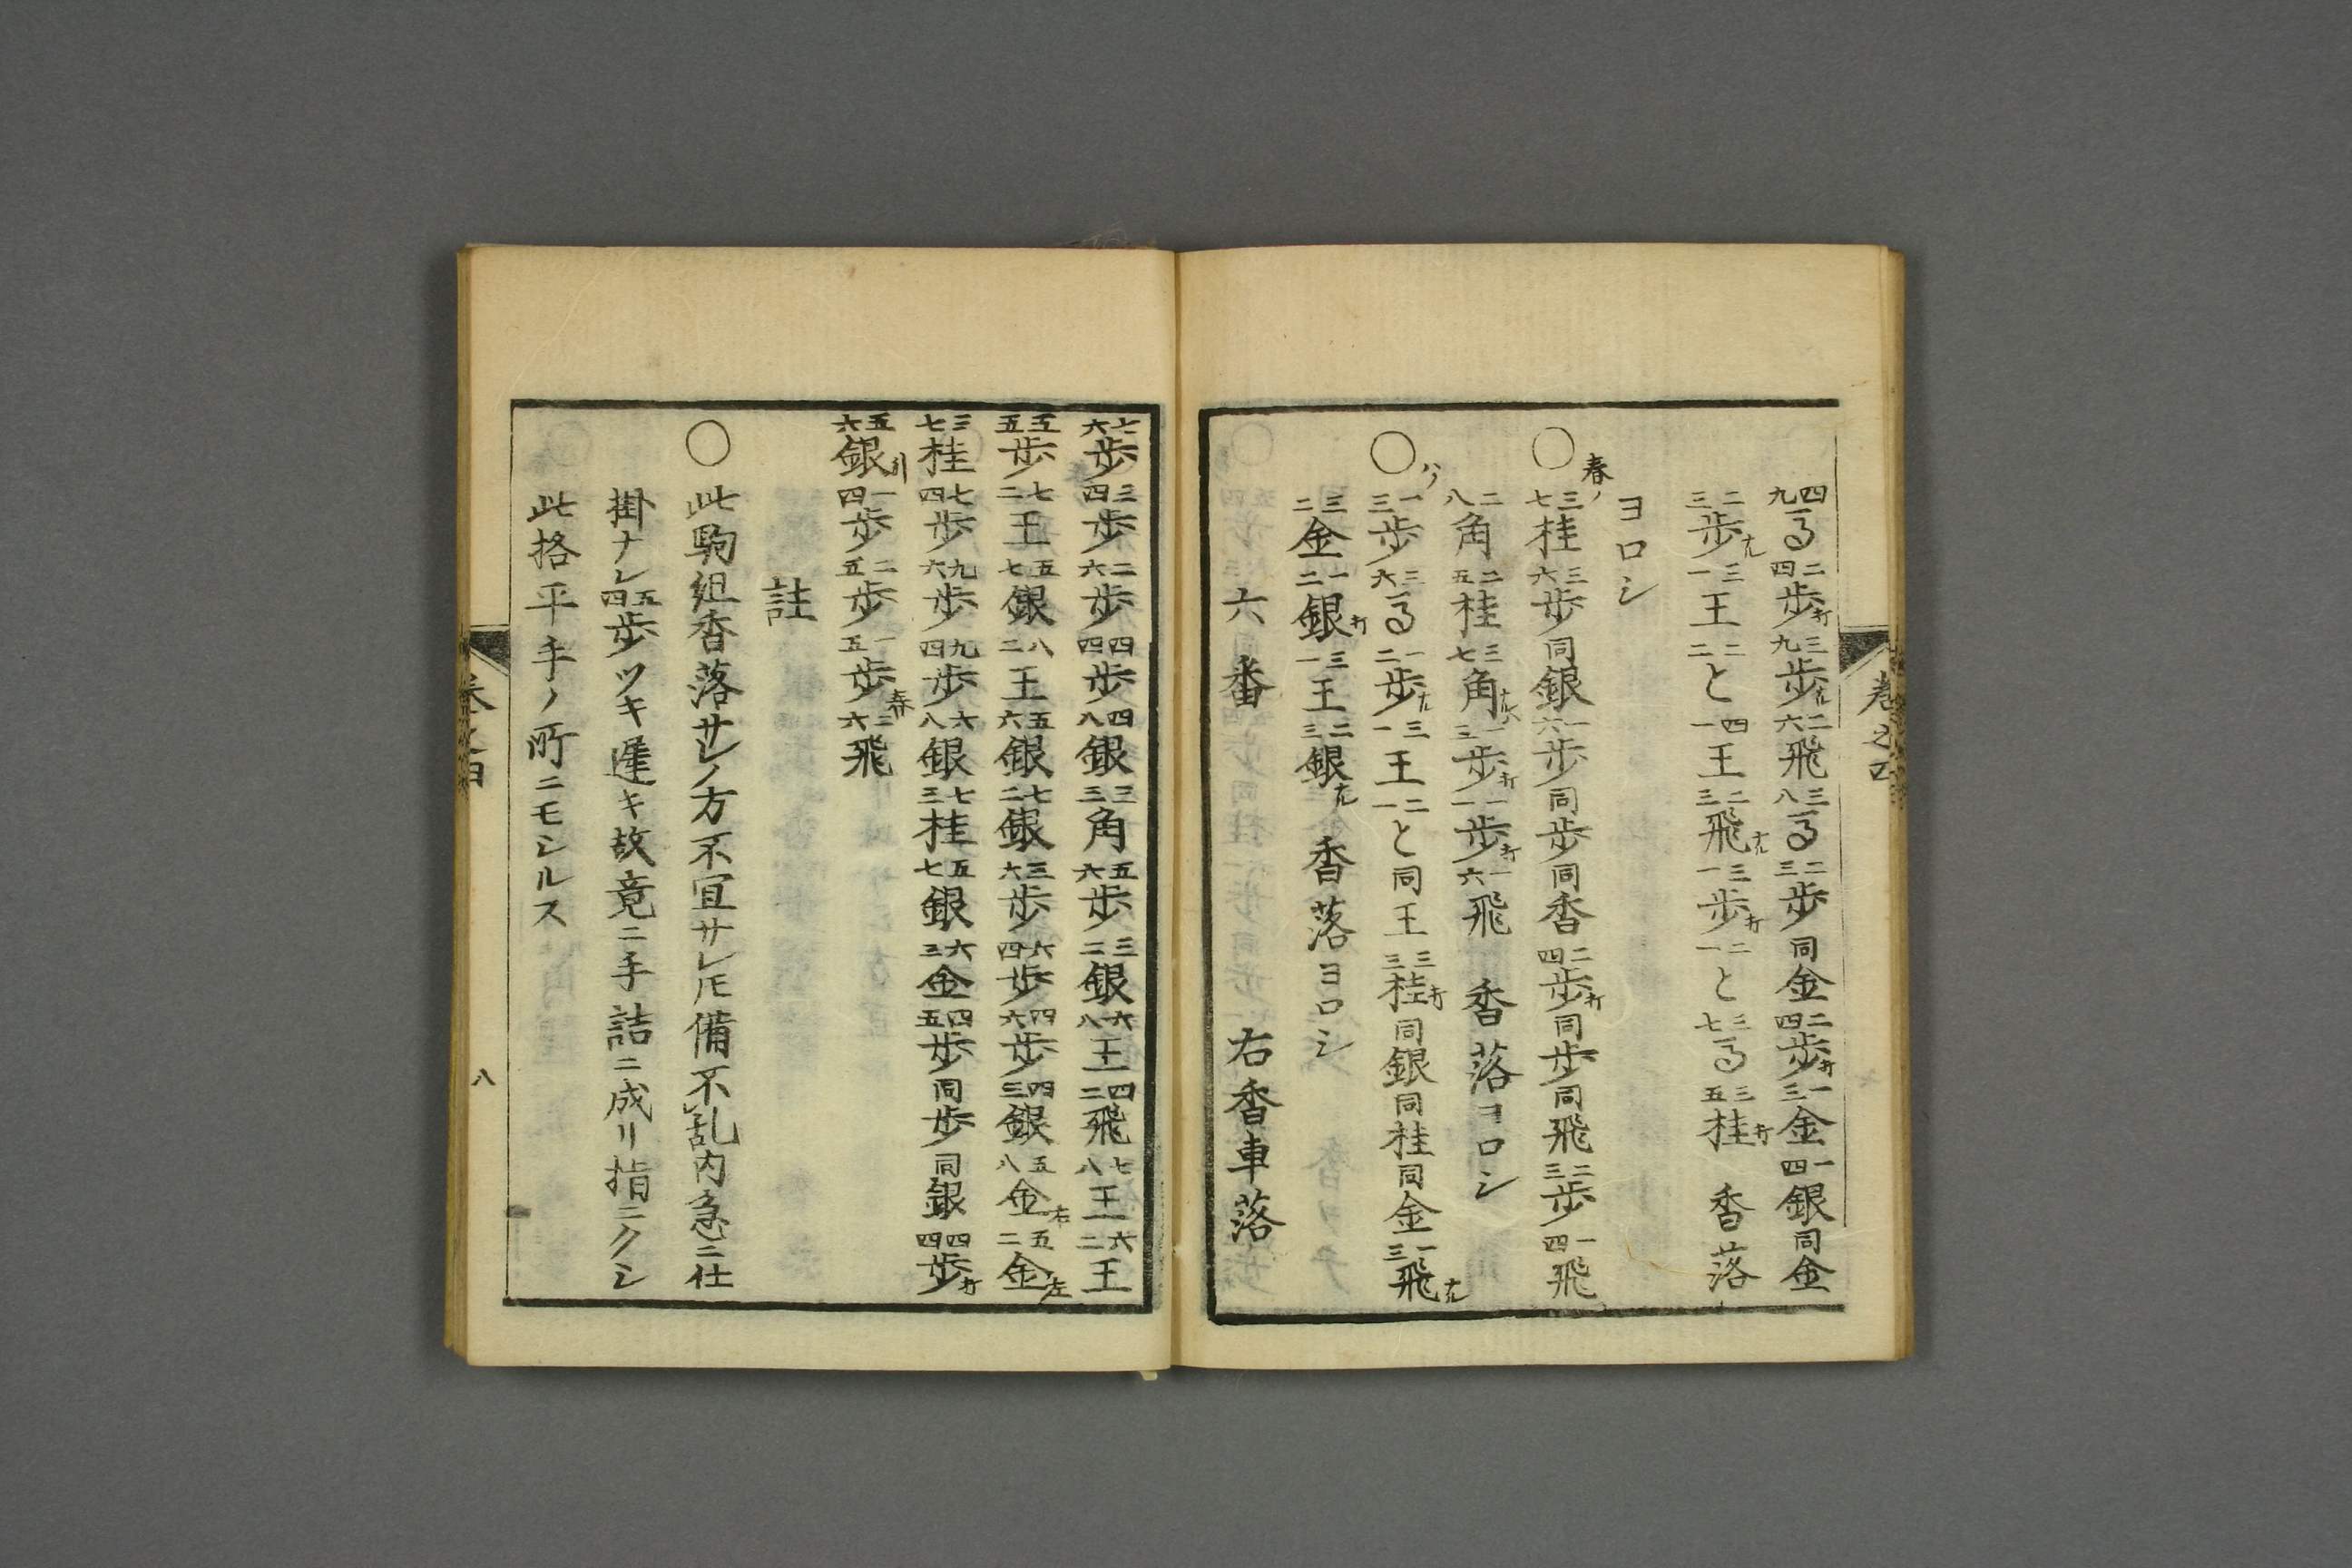 四九馬二四歩打三九歩ナル二六飛三八馬二三歩同金二四歩打一三金一四銀同金
二三歩ナル三一王二二と四一王二三飛ナル三一歩打二一と三七馬三五桂打 香落
ヨロシ
春ノ
○三七桂三六歩同銀一六歩同歩同香二四歩打同歩同飛二三歩一四飛
二八角二五桂三七角ナル一三歩打一一歩打一六飛 香落ヨロシ
○ハノ一三歩三六馬一二歩ナル三一王二一と同王三三桂打同銀同桂同金一三飛ナル
三二金一二銀打三一王二三銀ナル 香落ヨロシ
六番 右香車落
巻之四
七六歩三四歩二六歩四四歩四八銀三三角五六歩三二銀六八王四二飛七八王六二王
五五歩七二王五七銀八二王五六銀七二銀三六歩六四歩四六歩四三銀五八金右五二金左
三七桂七四歩九六歩九四歩六八銀七三桂五七銀六三金四五歩同歩同銀四四歩打
五六銀引一四歩二五歩一五歩春三六飛
註
○此駒組香落サレノ方不宜サレ𪜈備不乱内急ニ仕
掛ナレ五四歩ツキ遅キ故竟ニ手詰ニ成リ指ニクシ
此格平手ノ所ニモシルス
巻之四
八